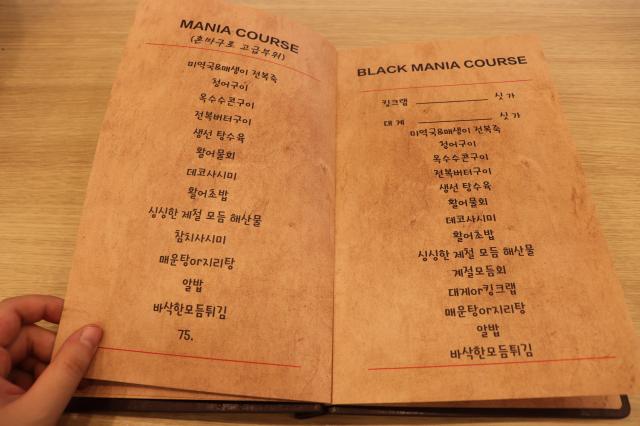 MANIA COURSE
(혼마구로 고급부위)
미역국&매생이 전복죽
청어구이
옥수수콘구이
전복버터구이
생선 탕수육
활어물회
데코사시미
활어초밥
싱싱한 제철 모듬 해산물
참치사시미
매운탕or지리탕
알밥
바삭한모듬튀김
75.
BLACK MANIA COURSE
킹크랩 __________ 싯가
대게 __________ 싯가
미역국&매생이 전복죽
청어구이
옥수수콘구이
전복버터구이
생선 탕수육
활어물회
데코사시미
활어초밥
싱싱한 제철 모듬 해산물
계절모듬회
대게or킹크랩
매운탕or지리탕
알밥
바삭한모듬튀김